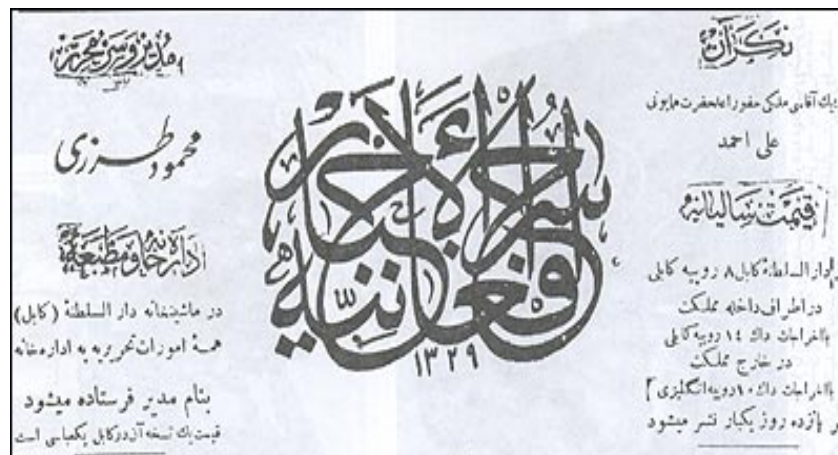 نگران
علی احمد
قیمت سالیانه
دار السلطنهٔ کابل ۸ روپیه کابلی
در اطراف داخله مملکت
با اخراجات داك ۱٤ روپیه کابلی
در خارج مملکت
با اخراجات داك ۱۰ روپیه انگلیزی
پازده روز یکبار نشر میشود
سراج الاخبار
افغانیه
۱۳۲۹
مدیر و سر محرر
محمود طرزی
اداره خانه و مطبعه
در ماشینخانه دار السلطنهٔ (کابل)
همهٔ امورات تحریریه به اداره خانه
بنام مدیر فرستاده میشود
قیمت یك نسخهٔ آن در کابل یکعباسی است